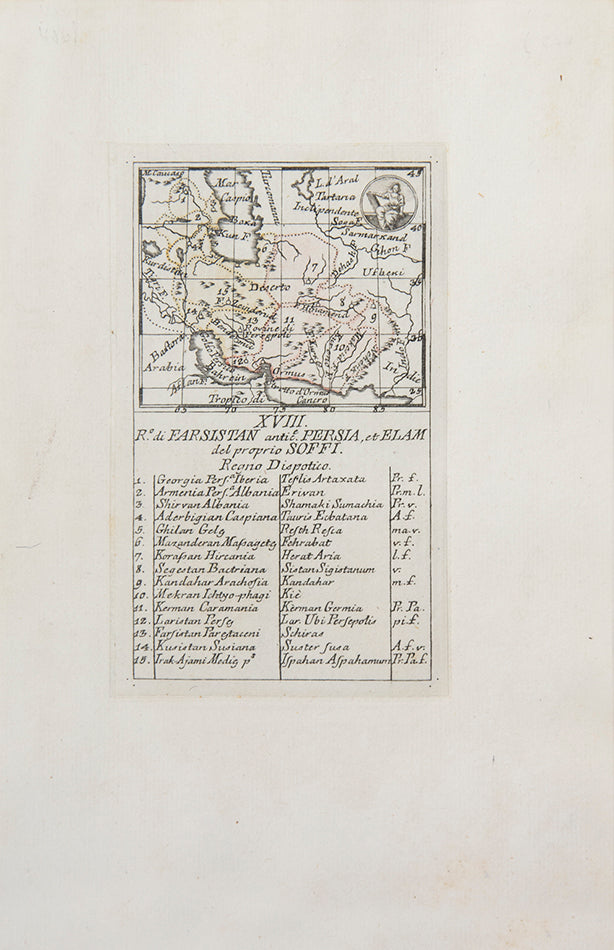 M. Caucaso
Mar Caspio
L. d'Aral
Tartaria
Independente
Soga F.
Sarmarkand
Gihon F.
Usbeki
Baku
Kur F.
Kurdistan
Tigri F.
Deserto
Zenderu
Rovine di
Bastora
Arabia
Golfo Persico
Bahrein
Ormus
Stretto d'Ormus
Tropico di Cancro
Indo F.
Indie
45
40
35
25
65 70 75 80 85
1 2 3 4 6 7 8 9 10 11 12 13 14 15
XVIII.
R.o di FARSISTAN antic. PERSIA, et ELAM
del proprio SOFFI.
Regno Dispotico.
1. Georgia Pers.a Iberia Teflis Artaxata Pr. f.
2. Armenia Pers.a Albania Erivan Pr.m.l.
3. Shirvan Albania Shamaki Sumachia Pr. v.
4. Aderbigian Caspiana Tauris Ecbatana A. f.
5. Ghilan Gelę Resth Resca ma. v.
6. Mazanderan Massagetę Fehrabat v. f.
7. Korassan Hircania Herat Aria l. f.
8. Segestan Bactriana Sistan Sigistanum v.
9. Kandahar Arachosia Kandahar m. f.
10. Mekran Ichtyo-phagi Kiè
11. Kerman Caramania Kerman Germia Pr. Pa.
12. Laristan Persę Lar Ubi Persepolis pi. f.
13. Farsistan Parętaceni Schiras
14. Kusistan Susiana Suster susa A. f. v.
15. Irak-Ajami Medię p.s Ispahan Aspahamum Pr. Pa. f.